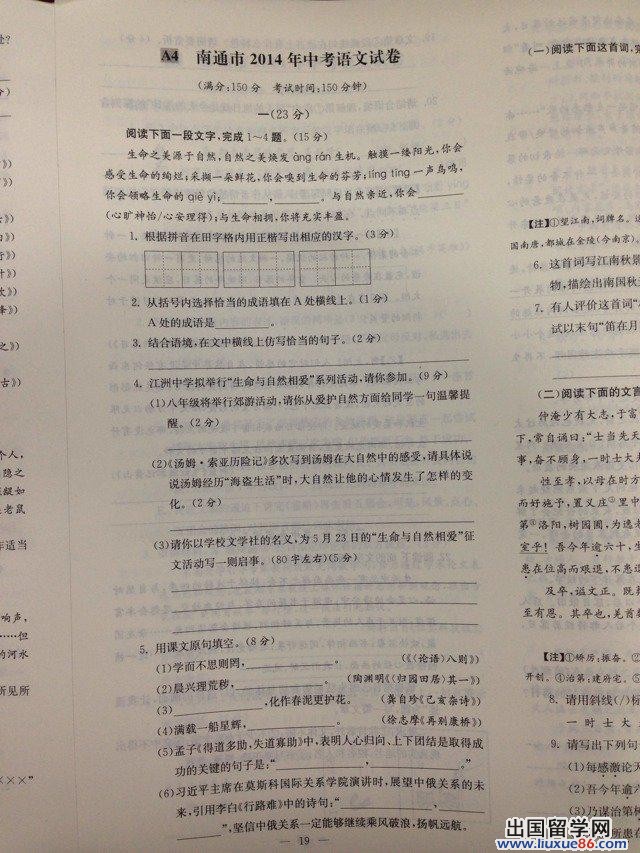 A4 南通市 2014 年中考语文试卷
(满分:150 分 考试时间:150 分钟)
一(23 分)
阅读下面一段文字,完成 1~4 题。(15 分)
生命之美源于自然,自然之美焕发 àng rán 生机。触摸一缕阳光,你会
感受生命的绚烂;采撷一朵鲜花,你会嗅到生命的芬芳;líng tīng 一声鸟鸣,
你会领略生命的 qiè yì;________,________。与自然亲近,你会______
(心旷神怡/心安理得);与生命相拥,你将充实丰盈。
1. 根据拼音在田字格内用正楷写出相应的汉字。(3 分)
2. 从括号内选择恰当的成语填在 A 处横线上。(1 分)
A 处的成语是________。
3. 结合语境,在文中横线上仿写恰当的句子。(2 分)
4. 江洲中学拟举行“生命与自然相爱”系列活动,请你参加。(9 分)
(1)八年级将举行郊游活动,请你从爱护自然方面给同学一句温馨提
醒。(2 分)
(2)《汤姆·索亚历险记》多次写到汤姆在大自然中的感受,请具体说
说汤姆经历“海盗生活”时,大自然让他的心情发生了怎样的变
化。(2 分)
(3)请你以学校文学社的名义,为 5 月 23 日的“生命与自然相爱”征
文活动写一则启事。(80 字左右)(5 分)
5. 用课文原句填空。(8 分)
(1)学而不思则罔,____________。 (《〈论语〉八则》)
(2)晨兴理荒秽,____________。 (陶渊明《归园田居》其一)
(3)____________,化作春泥更护花。 (龚自珍《己亥杂诗》)
(4)满载一船星辉,____________。 (徐志摩《再别康桥》)
(5)孟子《得道多助,失道寡助》中,表明人心归向、上下团结是取得成
功的关键的句子是:“____________,____________。”
(6)习近平主席在莫斯科国际关系学院演讲时,展望中俄关系的未
来,引用李白《行路难》中的诗句:“____________,________
____”,坚信中俄关系一定能够继续乘风破浪,扬帆远航。
— 19 —
(一)阅读下面这首词,完
【注】①望江南,词牌名。
国南唐,都城在金陵(今南京)。
6. 这首词写江南秋景
物,描绘出南国秋
7. 有人评价这首词“
试以末句“笛在月
(二)阅读下面的文言
仲淹少有大志,于富
下,常自诵曰:“士当先天
事,奋不顾身,一时士大夫
性至孝,以母在时方
而好施予,置义庄里中
第洛阳,树园圃,为逸老
室乎!吾今年逾六十,生
患在位高而艰退,不患退
及卒,谥文正。既
至有恩。其卒也,羌首数
【注】①矫厉:振奋。②
开创。④治第:建府宅。⑤
8. 请用斜线(/)标
一 时 士 大 夫
9. 请写出下列句
(1)每感激论天
(2)吾今年逾六
(3)乃谋治第树
出国留学网
www.liuxue86.com